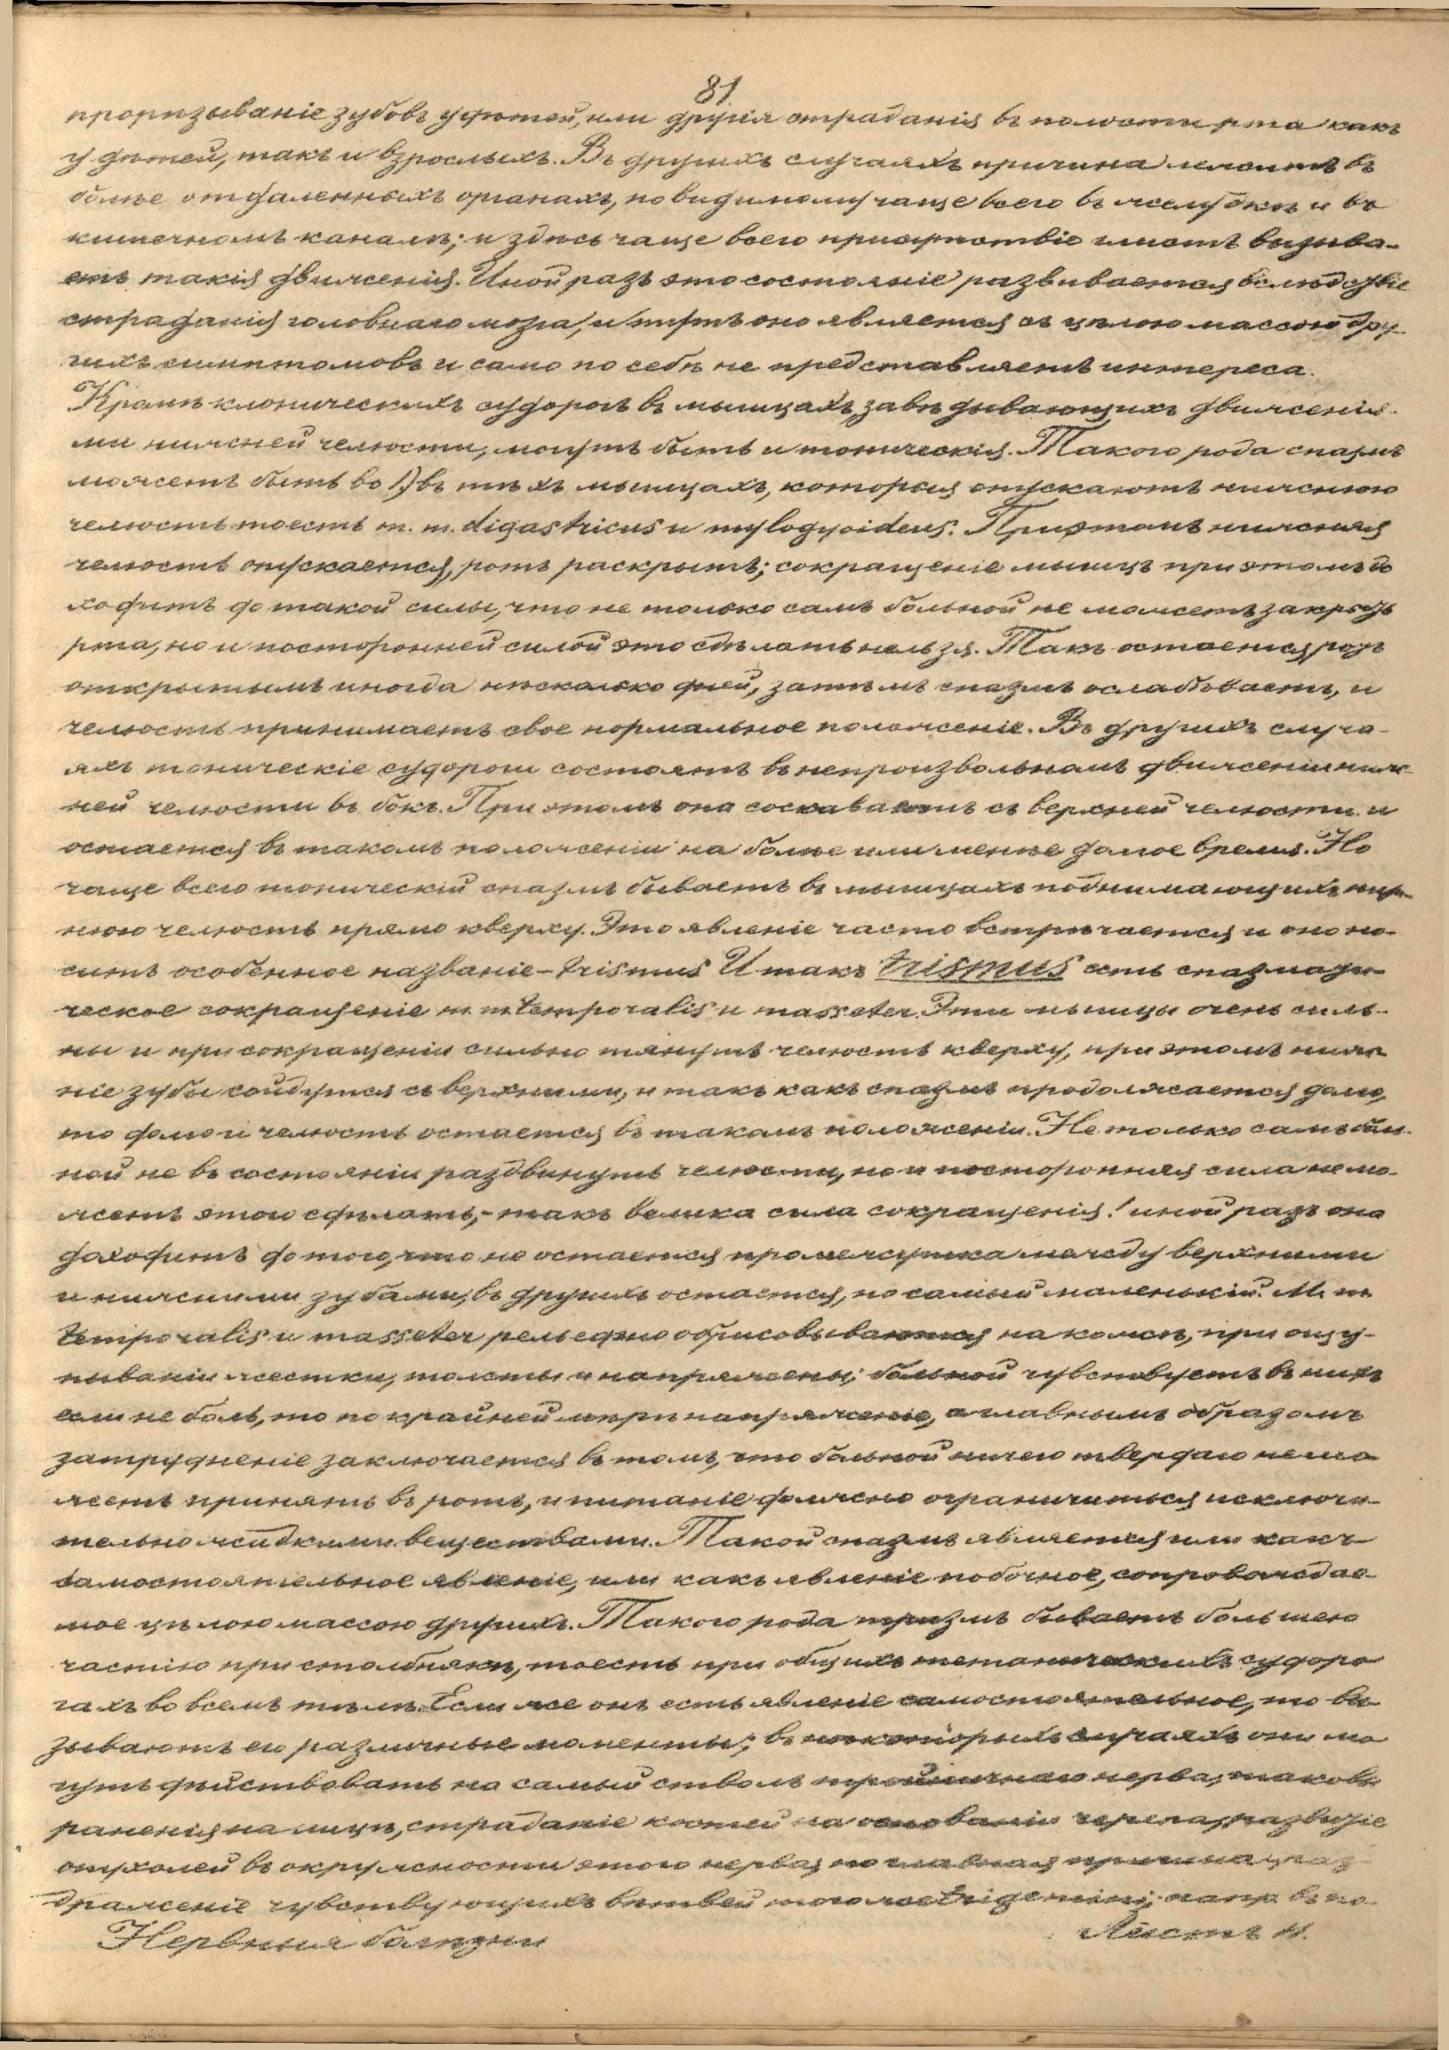 81
прорѣзываніе зубовъ у дѣтей, или другія страданія въ полости рта какъ
у дѣтей, такъ и взрослыхъ. Въ другихъ случаяхъ причина лежитъ въ
болѣе отдаленныхъ органахъ, повидимому чаще всего въ желудкѣ и въ
кишечномъ каналѣ; и здѣсь чаще всего присутствіе глистъ вызыва-
етъ такія движенія. Иной разъ это состояніе развивается вслѣдствіе
страданія головнаго мозга, и тутъ оно является съ цѣлою массою дру-
гихъ симптомовъ и само по себѣ не представляетъ интереса.
Кромѣ клоническихъ судорогъ въ мышцахъ, завѣдывающихъ движенія-
ми нижней челюсти, могутъ быть и тоническія. Такого рода спазмъ
можетъ быть во 1) въ тѣхъ мышцахъ, которыя опускаютъ нижнюю
челюсть тоесть m. m. digastricus и mylogyoideus. При этомъ нижняя
челюсть опускается, ротъ раскрытъ; сокращеніе мышцъ при этомъ до
ходитъ до такой силы, что не только самъ больной не можетъ закрыть
рта, но и посторонней силой это сдѣлать нельзя. Такъ остается ротъ
открытымъ иногда нѣсколько дней, затѣмъ спазмъ ослабѣваетъ, и
челюсть принимаетъ свое нормальное положеніе. Въ другихъ случа-
яхъ тоническіе судороги состоятъ въ непроизвольномъ движеніи ниж-
ней челюсти въ бокъ. При этомъ она соскаваетъ съ верхней челюсти и
остается въ такомъ положеніи на болѣе или менѣе долгое время. Но
чаще всего тоническій спазмъ бываетъ въ мышцахъ поднимающихъ ниж-
нюю челюсть прямо кверху. Это явленіе часто встрѣчается и оно но-
ситъ особенное названіе – trismus И такъ trismus есть спазмоди-
ческое сокращеніе m. m. temporalis и masseter. Эти мышцы очень силь-
ны и при сокращеніи сильно тянутъ челюсть кверху, при этомъ ниж-
ніе зубы сойдутся съ верхними, и такъ какъ спазмъ продолжается долго,
то долго и челюсть остается въ такомъ положеніи. Не только самъ боль-
ной не въ состояніи раздвинуть челюсти, но и посторонняя сила не мо-
жетъ этого сдѣлать, – такъ велика сила сокращенія! иной разъ она
доходитъ до того, что не остается промежутка между верхними
и нижними зубами, въ другихъ остается, но самый маленькій. M. m.
temporalis и masseter рельефно обрисовываются на кожѣ, при ощу-
пываніи жестки, толсты и напряжены; больной чувствуетъ въ нихъ
если не боль, то по крайней мѣрѣ напряженіе, а главнымъ образомъ
затрудненіе заключается въ томъ, что больной ничего твердаго не мо
жетъ принять въ ротъ, и питаніе должно ограничиться исключи-
тельно жидкими веществами. Такой спазмъ является или какъ
самостоятельное явленіе, или какъ явленіе побочное, сопровождае
мое цѣлою массою другихъ. Такого рода тризмъ бываетъ большею
частію при столбнякѣ, тоесть при общихъ тетаническихъ судоро
гахъ во всемъ тѣлѣ. Если же онъ есть явленіе самостоятельное, то вы
зываютъ его различные моменты; въ нѣкоторыхъ случаяхъ они мо
гутъ дѣйствовать на самый стволъ тройничнаго нерва, таковы
раненія на лицѣ, страданіе костей на основаніи черепа, развитіе
опухолей въ окружности этого нерва; но главная причина раз-
драженіе чувствующихъ вѣтвей того же trigemini, напр. въ по-
Нервныя болѣзни
Листъ 11.